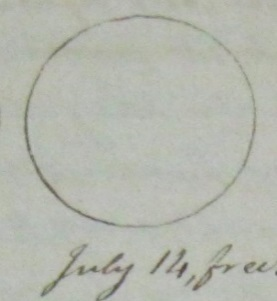 July 14, free